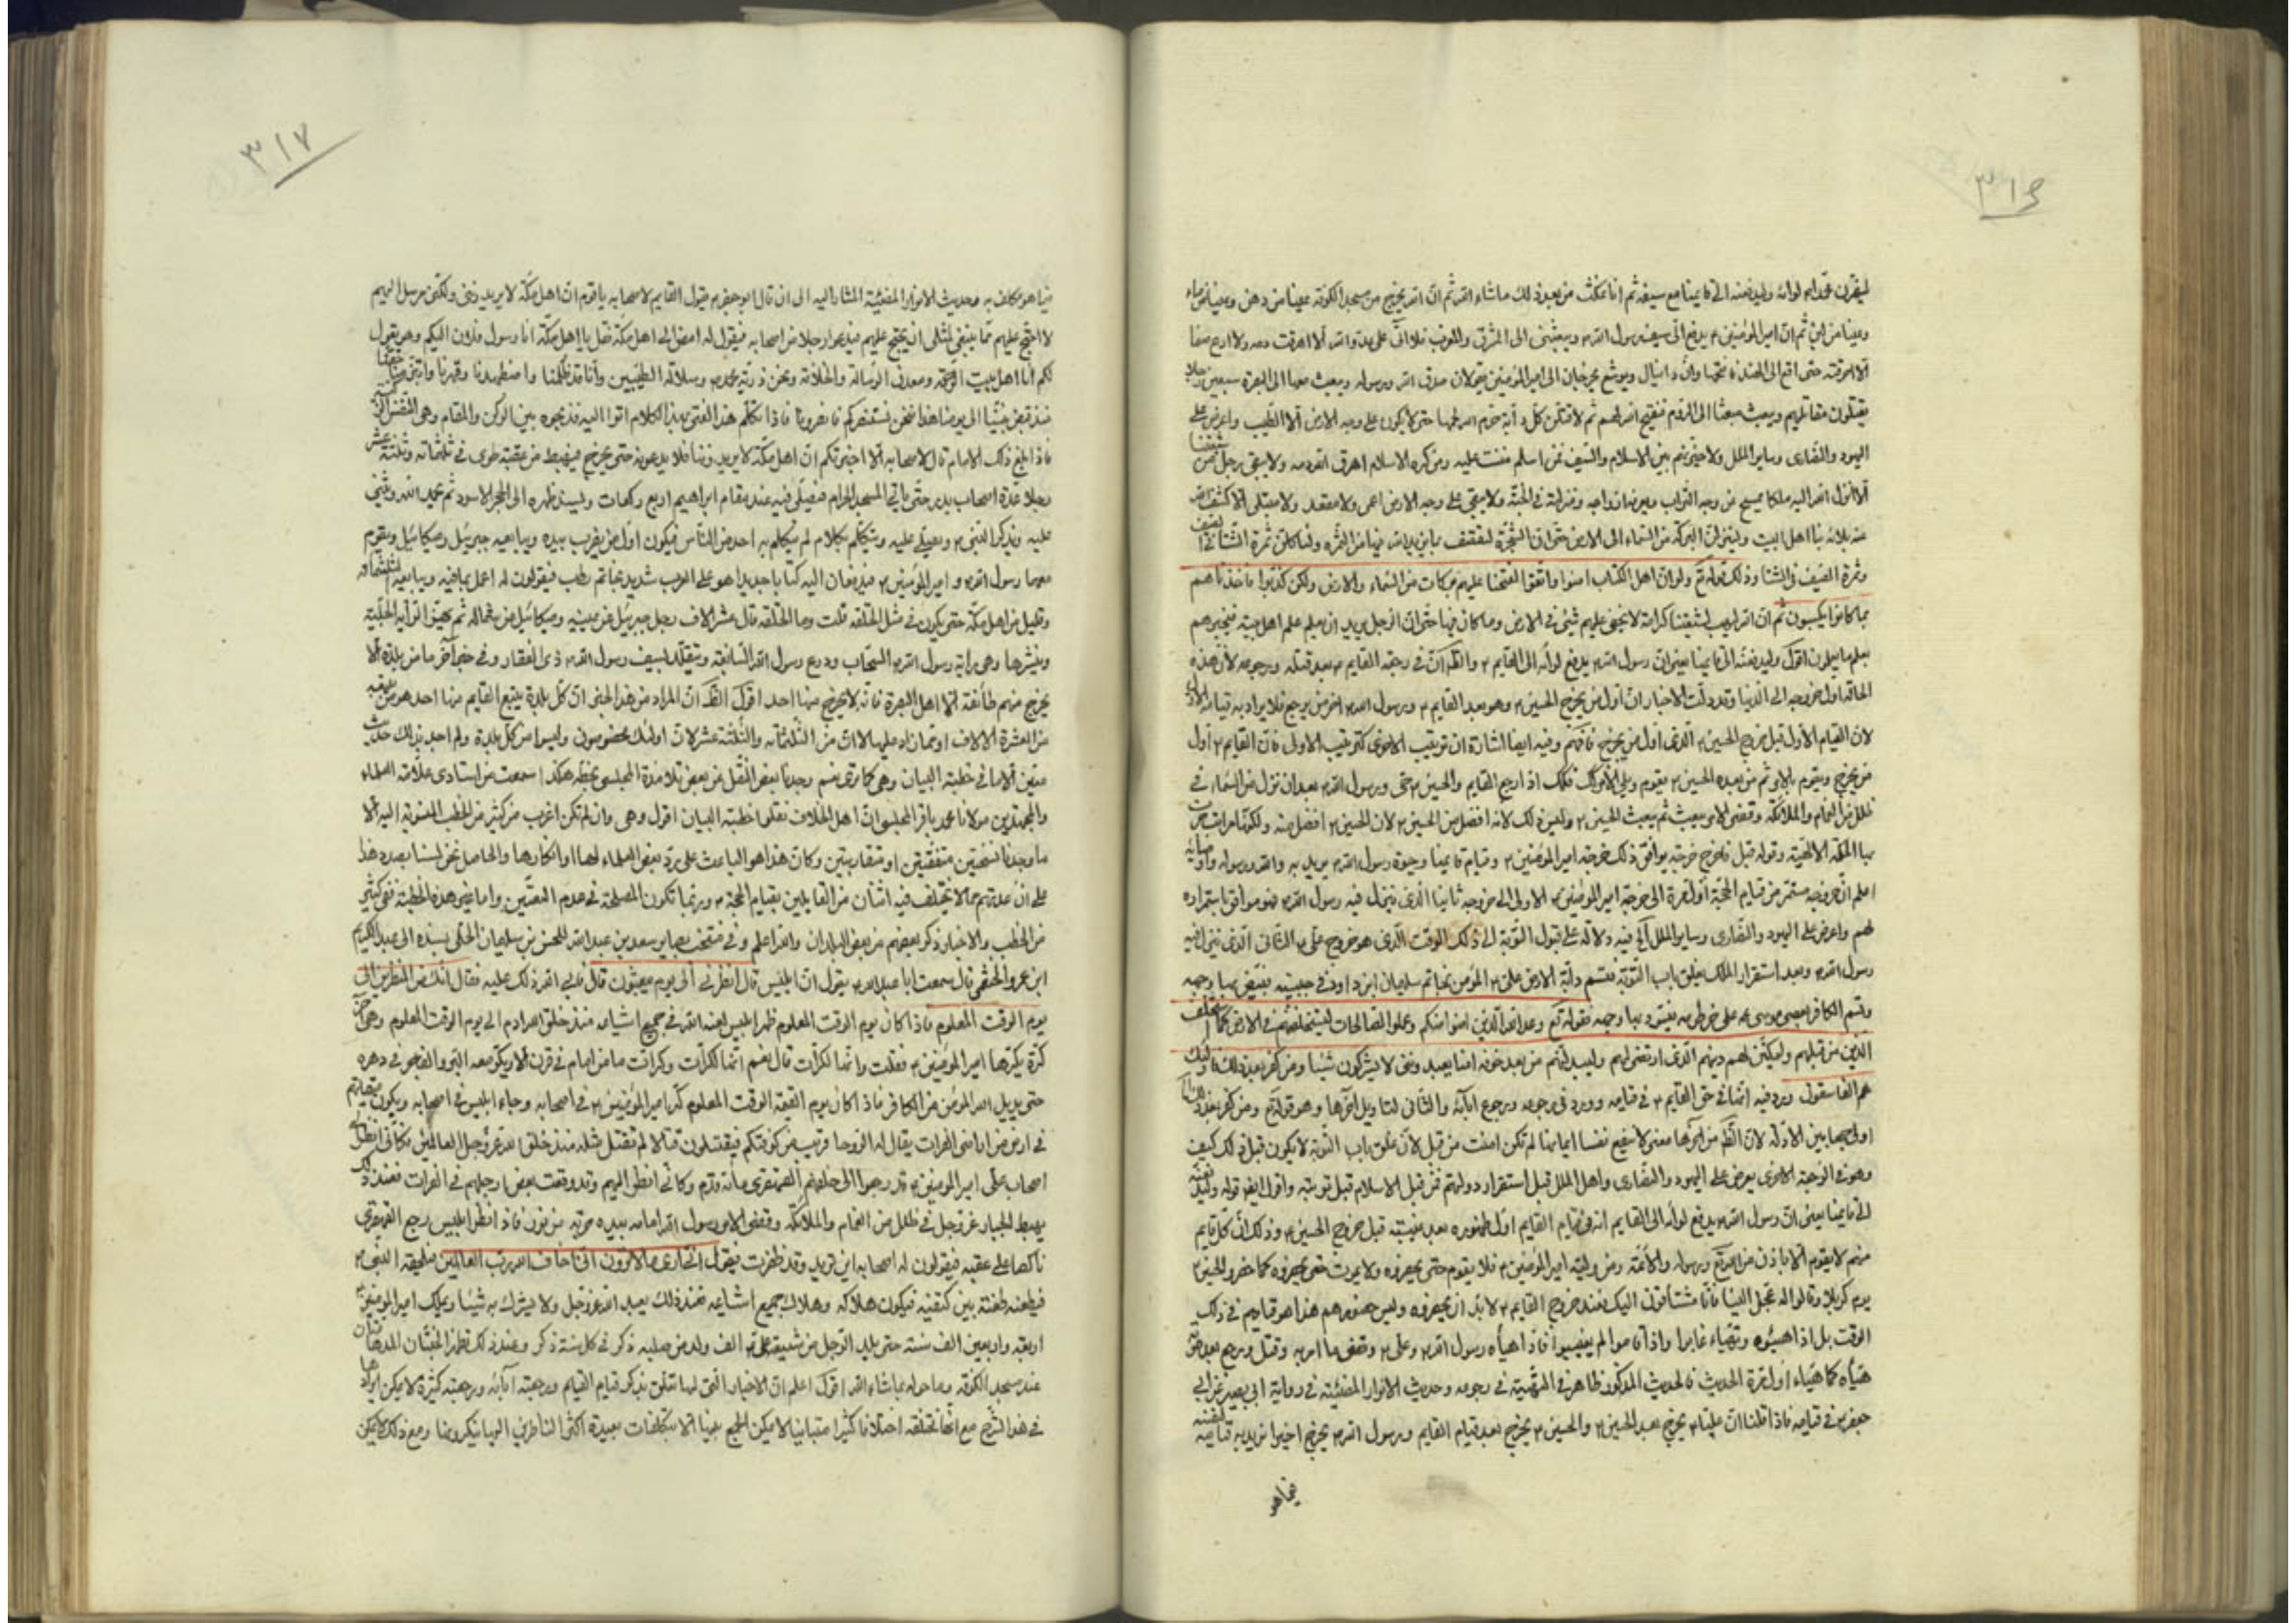 ٣١٦
ليقرن محمد لواءه وليدفعنه الى قايمنا مع سيفه ثم انا نمكث من بعد ذلك ما شاء الله ثم ان الله يخرج من مسجد الكوفة عينا من دهن وعينا من ماء
وعينا من لبن ثم ان امير المؤمنين ع يدفع الى سيف رسول الله ص ويبعثنى الى المشرق والمغرب فلا اتى على عدو الله الا اهرقت دمه ولا ادع صنما
الا احرقته حتى اقع الى الهند فافتحها وان دانيال ويوشع يخرجان الى امير المؤمنين يقولان صدق الله ورسوله ويبعث معهما الى البصرة سبعين رجلا
يقتلون مقاتليهم ويبعث بعثا الى الروم فيفتح الله لهم ثم لاقتلن كل دابة حرم الله لحمها حتى لا يكون على وجه الارض الا الطيب واعرض على
اليهود والنصارى وساير الملل ولاخيرنهم بين الاسلام والسيف فمن اسلم مننت عليه ومن كره الاسلام اهرق الله دمه ولا يبقى رجل من شيعتنا
الا انزل الله اليه ملكا يمسح عن وجهه التراب ويعرفه ازواجه ومنزلته فى الجنة ولا يبقى على وجه الارض اعمى ولا مقعد ولا مبتلى الا كشف الله
عنه بلائه بنا اهل البيت ولينزلن البركة من السماء الى الارض حتى ان الشجرة لتقصف بما يريد الله فيها من الثمرة ولتاكلن ثمرة الشتا فى الصيف
وثمرة الصيف فى الشتا وذلك قوله تع ولو ان اهل الكتاب امنوا واتقوا لفتحنا عليهم بركات من السماء والارض ولكن كذبوا فاخذناهم
بما كانوا يكسبون ثم ان الله ليهب لشيعتنا كرامة لا يخفى عليهم شئ فى الارض وما كان فيها حتى ان الرجل يريد ان يعلم علم اهل بيته فيخبرهم
بعلم ما يعملون اقول وليدفعنه الى قايمنا يعنى ان رسول الله ص يدفع لوائه الى القايم ع والظ ان فى رجعة القايم ع بعد قتله ورجوعه لان هذه
الحالة اول خروجه الى الدنيا وقد دلت الاخبار ان اول من يخرج الحسين ع وهو بعد القايم ع ورسول الله ص اخر من يرجع فلا يراد به قيامه الاول
لان القيام الاول قبل خروج الحسين ع الذى اول من يخرج فافهم وفيه ايضا اشارة ان ترتيب الاخرى كترتيب الاولى فان القايم ع اول
من يخرج ويقوم بالامر ثم من بعده الحسين ع يقوم
ظلل من الغمام والملائكة وقضى الامر يبعث ثم يبعث الحسين ع وليس ذلك لانه افضل من الحسين ع لان الحسين ع افضل منه
اعلم ان خروجه مستمر من قيام الحجة اول مرة الى خرجة امير المؤمنين ع الاولى الى خروجه ثانيا الذى ينزل فيه رسول الله ص فهو موافق باستمراره
لهم واعرض على اليهود والنصارى وساير الملل الخ فيه دلالة على قبول التوبة الى ذلك الوقت الذى هو خروج على ع الثانى الذى ينزل فيه
رسول الله ص وبعد استقرار الملك يغلق باب التوبة فتسم دابة الارض على ع المؤمن بخاتم سليمان ابن داود فى جبينه فيبيض بها وجهه
وتسم الكافر بعصى موسى ع على خرطومه فيسود بها وجهه فقوله تع وعد الله الذين امنوا منكم وعملوا الصالحات ليستخلفنهم فى الارض كما استخلف
الذين من قبلهم وليمكنن لهم دينهم الذى ارتضى لهم وليبدلنهم من بعد خوفهم امنا يعبدوننى لا يشركون شيئا ومن كفر بعد ذلك فاولئك
هم الفاسقون ورد فيه انها فى حق القايم ع فى قيامه وورد فى رجوعه ورجوع ابآئه والثانى
وهو فى الرجعة الاخرى يعرض على اليهود والنصارى واهل الملل قبل استقرار دولتهم فمن قبل الاسلام قبل توبته واقول ايض قوله وليدفعنه
الى قايمنا يعنى ان رسول الله ص يدفع لوائه الى القايم انه فى قيام القايم اول ظهوره بعد غيبته قبل خروج الحسين ع وذلك ان كل قايم
منهم لا يقوم الا باذن من الله تع ورسوله والائمة ومن وليه امير المؤمنين ع فلا يقوم حتى يحضروه ولا يموت حتى يحضروه كما حضروا الحسين ع
يوم كربلا وقالوا له عجل الينا فانا مشتاقون اليك فعند خروج القايم ع لا بد ان يحضروه وليس حضورهم هذا هو قيامهم فى ذلك
الوقت بل اذا
هياه كما هياه اول مرة الحديث فالحديث المذكور ظاهر فى
جعفر ع فى قيامه فاذا قلنا ان عليا ع يخرج بعد الحسين ع والحسين ع يخرج بعد قيام القايم ورسول الله ص يخرج اخيرا نريد به قيامه
فيما هو
٣١٧
فيما هو مكلف به وحديث الانوار المضيئة المشار اليه الى ان قال ابو جعفر ع يقول القايم لاصحابه يا قوم ان اهل مكة لا يريدوننى ولكنى مرسل اليهم
لاحتج عليهم بما ينبغى لمثلى ان يحتج عليهم فيدعو رجلا من اصحابه فيقول له امض الى اهل مكة فقل يا اهل مكة انا رسول فلان اليكم وهو يقول
لكم انا اهل بيت الرحمة ومعدن الرسالة والخلافة ونحن ذرية محمد ص وسلالة النبيين وانا قد ظلمنا واضطهدنا وقهرنا وابتز منا حقنا
منذ قبض نبينا الى يومنا هذا فنحن نستنصركم فانصرونا فاذا تكلم هذا الفتى بهذا الكلام اتوا اليه فذبحوه بين الركن والمقام وهى النفس الزكية
فاذا بلغ ذلك الامام قال لاصحابه الا اخبرتكم ان اهل مكة لا يريدوننا فلا يدعونه حتى يخرج فيهبط من عقبة طوى فى ثلثمائة وثلثة عشر
رجلا عدة اصحاب بدر حتى ياتى المسجد الحرام فيصلى فيه عند مقام ابراهيم اربع ركعات ويسند ظهره الى الحجر الاسود ثم يحمد الله ويثنى
عليه ويذكر النبى ص ويصلى عليه ويتكلم بكلام لم يتكلم به احد من الناس فيكون اول من يضرب بيده ويبايعه جبرئيل وميكائيل ويقوم
معهما رسول الله ص و امير المؤمنين ع فيدفعان اليه كتابا جديدا هو على العرب شديد بخاتم رطب فيقولون له اعمل بما فيه ويبايعه الثلثمائة
وقليل من اهل مكة حتى يكون فى مثل الحلقة قلت وما الحلقة قال عشرة الاف رجل جبرئيل عن يمينه وميكائيل عن شماله ثم يهز الراية الجلية
وينشرها وهى راية رسول الله ص السحاب ودرع رسول الله السابغة ويتقلد بسيف رسول الله ص ذى الفقار وفى خبر آخر ما من بلدة الا
يخرج منهم طائفة الا اهل البصرة فانه لا يخرج منها احد اقول الظ ان المراد من هذا الخبر ان كل بلدة يتبع القايم منها احد
من العشرة الالاف او ممن زاد عليها لا ان من الثلثمائة والثلثة عشر لان اولئك مخصوصون وليسوا من كل بلدة ولم اجد بذلك حديث
معين الا ما فى خطبة البيان وهى كما ترى نعم وجدنا بعض النقل عن بعض تلامذة المجلسى بخطه هكذا سمعت من استادى علامة العلماء
والمجتهدين مولانا محمد باقر المجلسى ان اهل الخلاف نقلوا خطبة البيان اقول وهى وان لم تكن اغرب من كثير من الخطب المنسوبة اليه الا
ما وجدنا نسختين متفقتين او متقاربتين وكان هذا هو الباعث على رد بعض العلماء لها او انكارها والحاصل نحن لسنا بصدد هذا
على ان عدتهم مما لا يختلف فيه اثنان من القايلين بقيام الحجة ع وربما تكون المصلحة فى عدم التعيين واما غير هذه الخطبة ففى كثير
من الخطب والاخبار ذكر بعضهم من بعض البلدان والله اعلم وفى منتخب بصاير سعد بن عبد الله للحسن بن سليمان الحلى بسنده الى عبد الكريم
ابن عمرو الخثعمى قال سمعت ابا عبد الله ع يقول ان ابليس قال انظرنى الى يوم يبعثون قال فابى الله ذلك عليه فقال انك من المنظرين الى
يوم الوقت المعلوم فاذا كان يوم الوقت المعلوم ظهر ابليس لعنه الله فى جميع اشياعه منذ خلق الله ادم الى يوم الوقت المعلوم وهى آخر
كرة يكرها امير المؤمنين ع فقلت وانها لكرات قال نعم انها لكرات وكرات ما من امام فى قرن الا ويكر معه البر والفاجر فى دهره
حتى يديل الله المؤمن من الكافر فاذا كان يوم الوقت المعلوم كر امير المؤمنين ع فى اصحابه وجاء ابليس فى اصحابه ويكون ميقاتهم
فى ارض من اراضى الفرات يقال له الروحا قريب من كوفتكم فيقتتلون قتالا لم يقتتل مثله منذ خلق الله عز وجل العالمين فكانى انظر الى
اصحاب على امير المؤمنين ع قد رجعوا الى خلفهم القهقرى مائة قدم وكانى انظر اليهم وقد وقعت بعض ارجلهم فى الفرات فعند ذلك
يهبط الجبار عز وجل فى ظلل من الغمام والملائكة وقضى الامر رسول الله امامه بيده حربة من نور فاذا نظر ابليس رجع القهقرى
ناكصا على عقبيه فيقولون له اصحابه اين تريد وقد ظفرت فيقول انى ارى ما لا ترون انى اخاف الله رب العالمين فيلحقه النبى ص
فيطعنه طعنة بين كتفيه فيكون هلاكه وهلاك جميع اشياعه فعند ذلك يعبد الله عز وجل ولا يشرك به شيئا ويملك امير المؤمنين ع
اربعة واربعين الف سنة حتى يلد الرجل من شيعة على ع الف ولد من صلبه ذكر فى كل سنة ذكر وعند ذلك تظهر الجنتان المدهامتان
عند مسجد الكوفة وما حوله بما شاء الله اقول اعلم ان الاخبار التى لها تعلق بذكر قيام القايم ورجعته
فى هذا الشرح مع انها مختلفة اختلافا كثيرا متباينا لا يمكن الجمع بينها الا بتكلفات بعيدة اكثر الناظرين اليها ينكرونها ومع ذلك لا يمكن